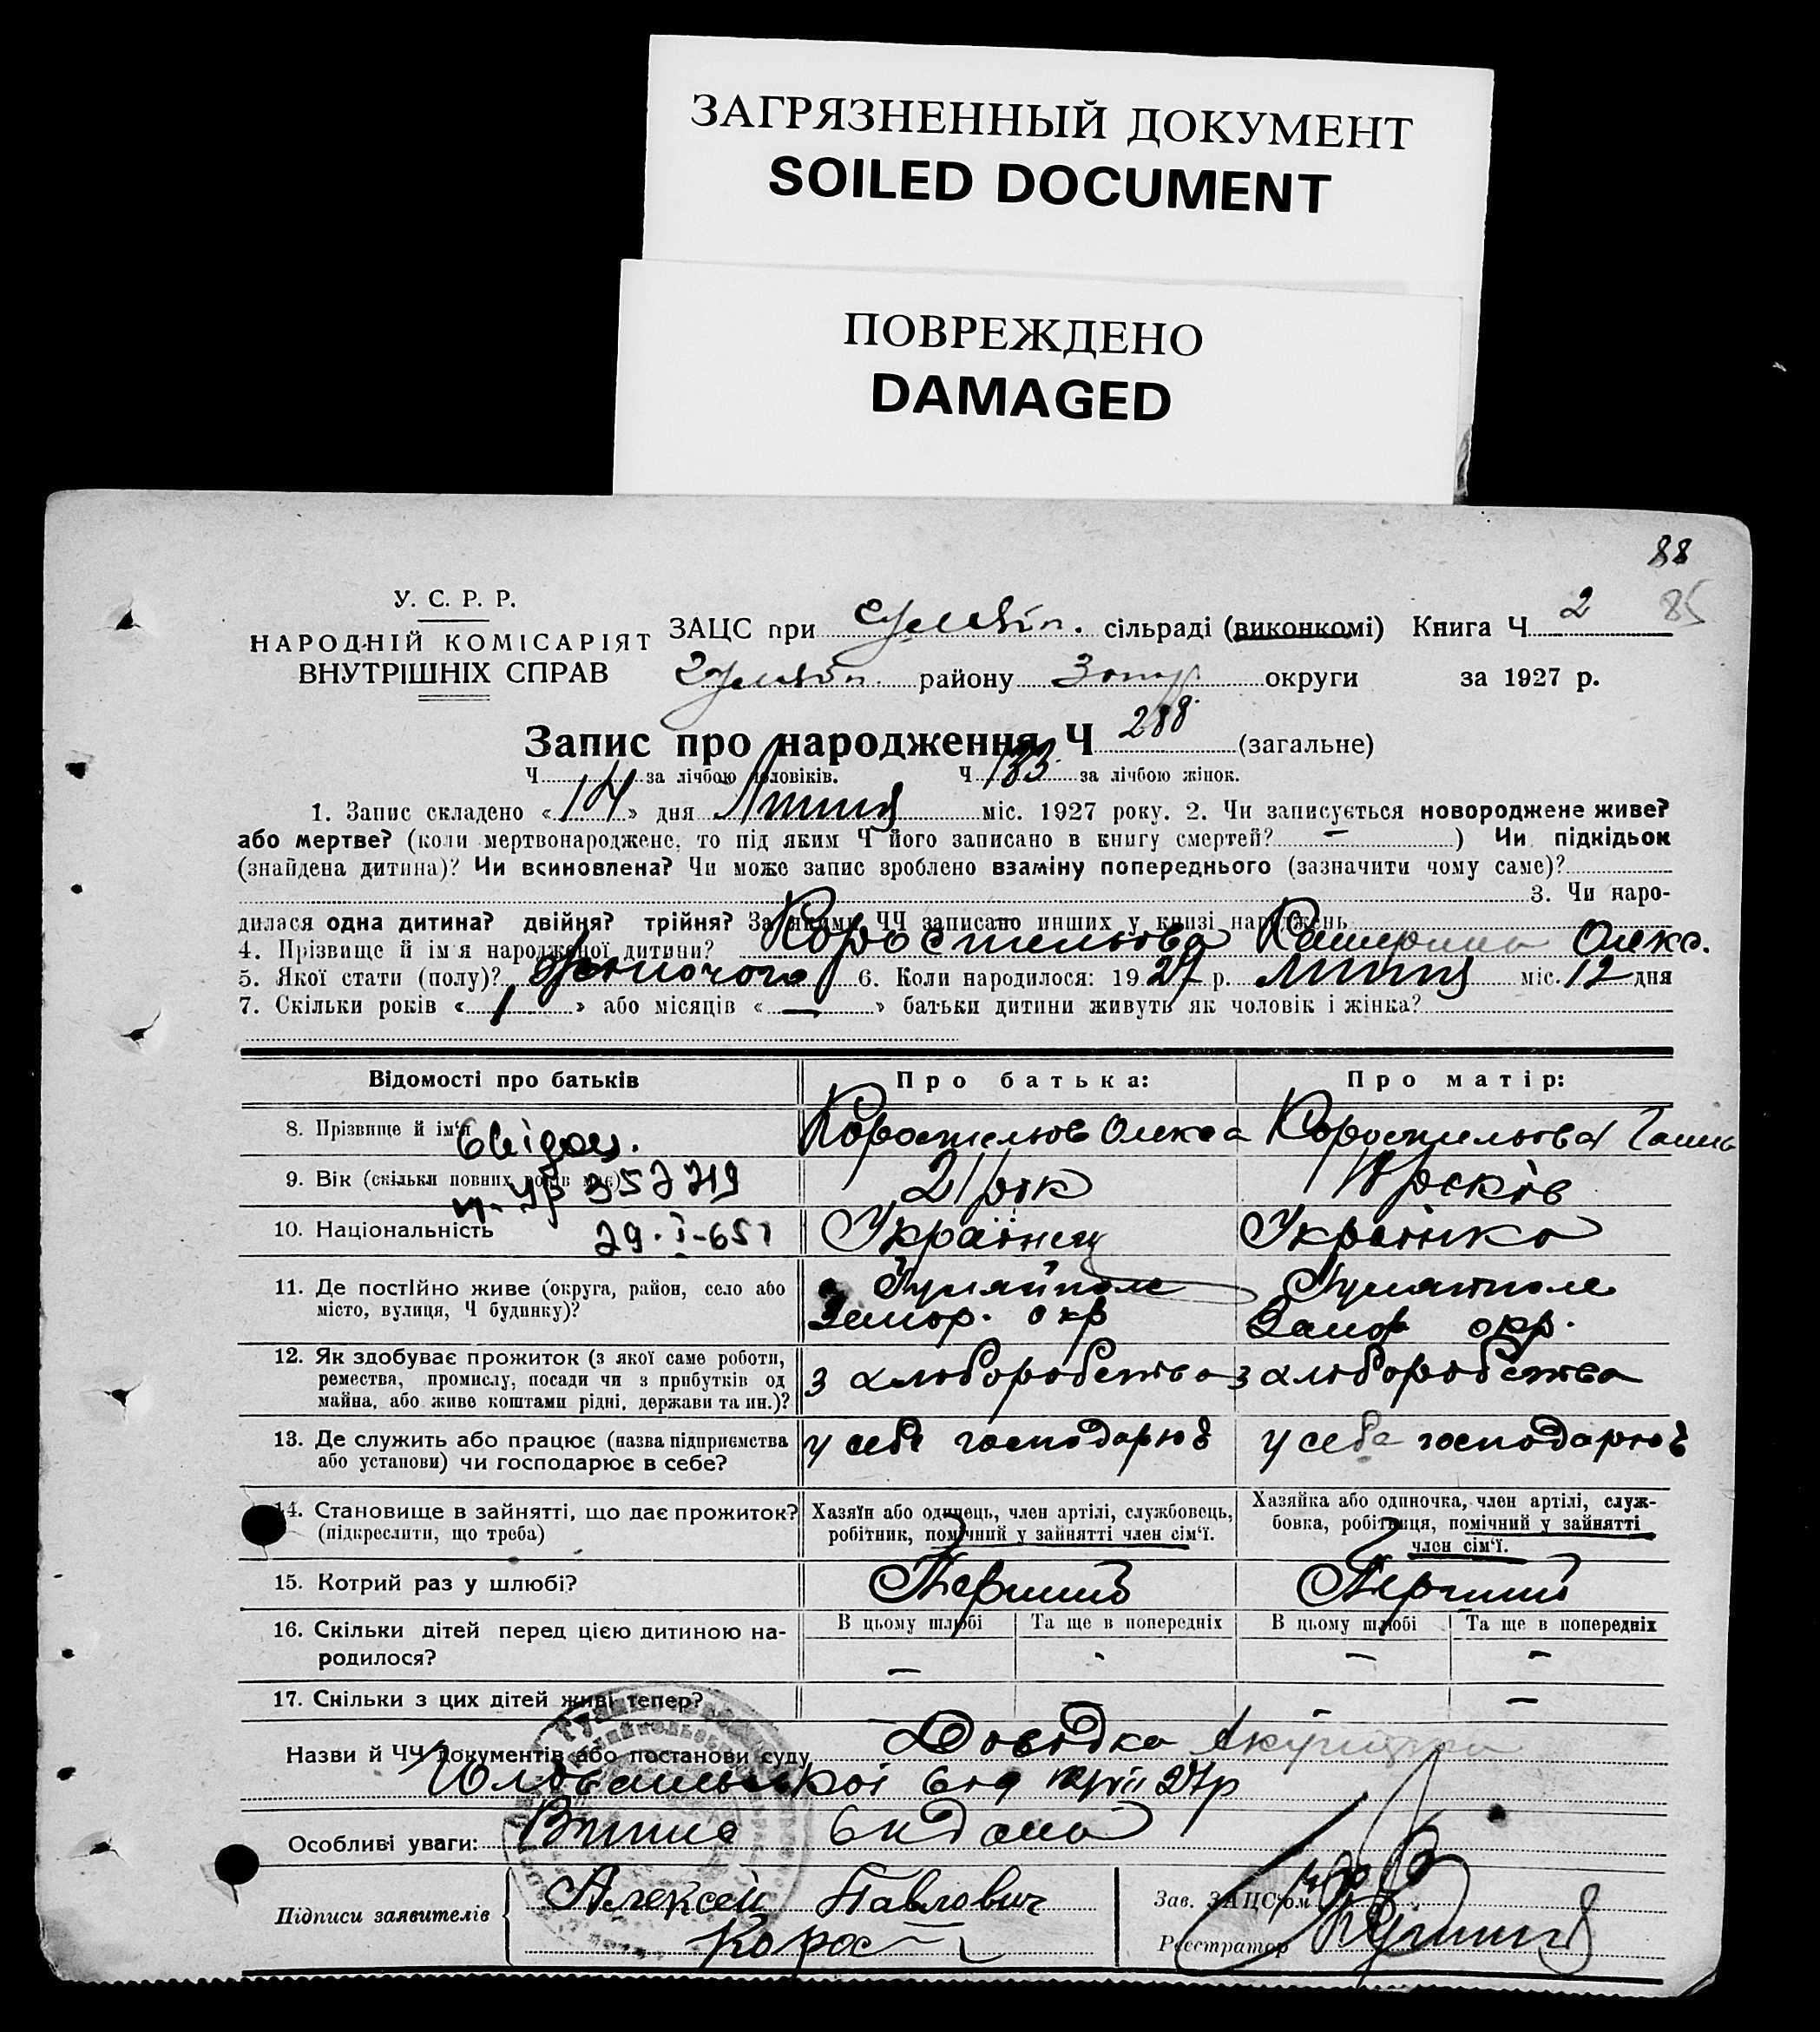 ЗАГРЯЗНЕННЫЙ ДОКУМЕНТ
SOILED DOCUMENT
ПОВРЕЖДЕНО
DAMAGED
88
85
У. С. Р. Р.
НАРОДНІЙ КОМІСАРІЯТ
ВНУТРІШНІХ СПРАВ
ЗАЦС при сільраді (виконкомі) Книга Ч 2
району Запор. округи за 1927 р.
Запис про народження Ч 288 (загальне)
Ч за лічбою чоловіків. Ч 133 за лічбою жінок.
1. Запис складено « 14 » дня Липня міс. 1927 року. 2. Чи записується новороджене живе?
або мертве? (коли мертвонароджене, то під яким Ч його записано в книгу смертей? — ) Чи підкідьок
(знайдена дитина)? Чи всиновлена? Чи може запис зроблено взаміну попереднього (зазначити чому саме)?
3. Чи наро-
дилася одна дитина? двійня? трійня? За якими ЧЧ записано инших у книзі народжень
4. Прізвище й ім'я народженої дитини? Коростильова Катерина Олекс.
5. Якої стати (полу)? Жіночого 6. Коли народилося: 1927 р. Липня міс. 12 дня
7. Скільки років « 1 » або місяців « — » батьки дитини живуть як чоловік і жінка?
Відомості про батьків Про батька: Про матір:
8. Прізвище й ім'я Коростильов Олекса Коростильова
9. Вік (скільки повних років має) 21 рік років
357719
10. Національність Українец Українка
29·I-65
11. Де постійно живе (округа, район, село або
місто, вулиця, Ч будинку)? Гуляйполе Гуляйполе
Запор. окр Запор окр.
12. Як здобуває прожиток (з якої саме роботи,
ремества, промислу, посади чи з прибутків од
майна, або живе коштами рідні, держави та ин.)? з хліборобства з хліборобства
13. Де служить або працює (назва підприємства
або установи) чи господарює в себе? у себе господарює у себе господарює
14. Становище в зайнятті, що дає прожиток?
(підкреслити, що треба)
Хазяїн або одинець, член артілі, службовець,
робітник, помічний у зайнятті член сім'ї.
Хазяйка або одиночка, член артілі, служ-
бовка, робітниця, помічний у зайнятті
член сім'ї.
15. Котрий раз у шлюбі? Перший Перший
16. Скільки дітей перед цією дитиною на-
родилося?
В цьому шлюбі Та ще в попередніх В цьому шлюбі Та ще в попередніх
— - — —
17. Скільки з цих дітей живі тепер? — —
Назви й ЧЧ документів або постанови суду Довідка
від 27р
Особливі уваги: Видана
Підписи заявителів Алексей Павлович
Корос
Зав. ЗАЦС'ом
Реєстратор